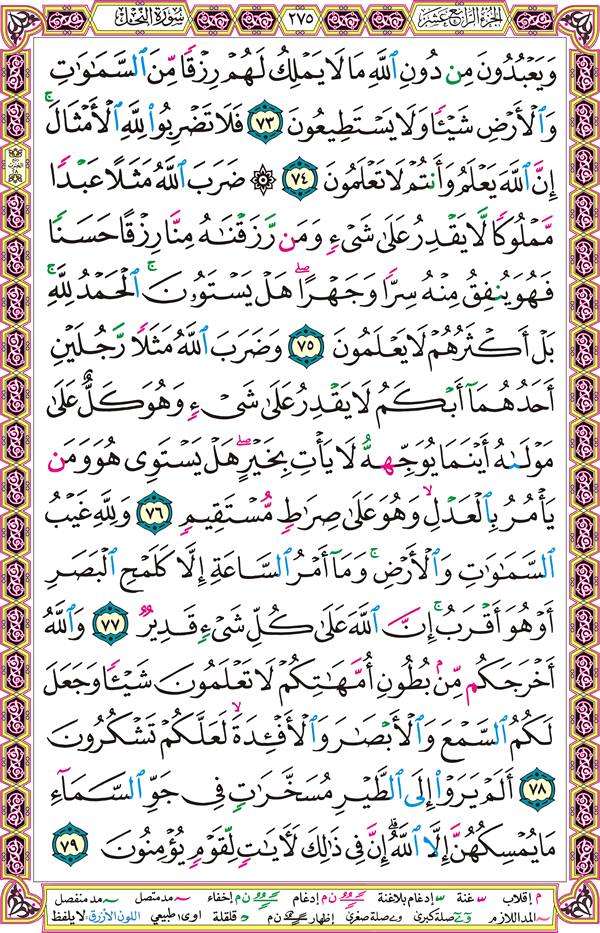 الجزء الرابع عشر
٢٧٥
سورة النحل
وَيَعْبُدُونَ مِن دُونِ ٱللَّهِ مَا لَا يَمْلِكُ لَهُمْ رِزْقًا مِّنَ ٱلسَّمَٰوَٰتِ
وَٱلْأَرْضِ شَيْـًٔا وَلَا يَسْتَطِيعُونَ ٧٣ فَلَا تَضْرِبُوا۟ لِلَّهِ ٱلْأَمْثَالَ ۚ
إِنَّ ٱللَّهَ يَعْلَمُ وَأَنتُمْ لَا تَعْلَمُونَ ٧٤ ۞ ضَرَبَ ٱللَّهُ مَثَلًا عَبْدًا
مَّمْلُوكًا لَّا يَقْدِرُ عَلَىٰ شَىْءٍ وَمَن رَّزَقْنَٰهُ مِنَّا رِزْقًا حَسَنًا
فَهُوَ يُنفِقُ مِنْهُ سِرًّا وَجَهْرًا ۖ هَلْ يَسْتَوُۥنَ ۚ ٱلْحَمْدُ لِلَّهِ ۚ
بَلْ أَكْثَرُهُمْ لَا يَعْلَمُونَ ٧٥ وَضَرَبَ ٱللَّهُ مَثَلًا رَّجُلَيْنِ
أَحَدُهُمَآ أَبْكَمُ لَا يَقْدِرُ عَلَىٰ شَىْءٍ وَهُوَ كَلٌّ عَلَىٰ
مَوْلَىٰهُ أَيْنَمَا يُوَجِّههُّ لَا يَأْتِ بِخَيْرٍ ۖ هَلْ يَسْتَوِى هُوَ وَمَن
يَأْمُرُ بِٱلْعَدْلِ ۙ وَهُوَ عَلَىٰ صِرَٰطٍ مُّسْتَقِيمٍ ٧٦ وَلِلَّهِ غَيْبُ
ٱلسَّمَٰوَٰتِ وَٱلْأَرْضِ ۚ وَمَآ أَمْرُ ٱلسَّاعَةِ إِلَّا كَلَمْحِ ٱلْبَصَرِ
أَوْ هُوَ أَقْرَبُ ۚ إِنَّ ٱللَّهَ عَلَىٰ كُلِّ شَىْءٍ قَدِيرٌ ٧٧ وَٱللَّهُ
أَخْرَجَكُم مِّنۢ بُطُونِ أُمَّهَٰتِكُمْ لَا تَعْلَمُونَ شَيْـًٔا وَجَعَلَ
لَكُمُ ٱلسَّمْعَ وَٱلْأَبْصَٰرَ وَٱلْأَفْـِٔدَةَ ۙ لَعَلَّكُمْ تَشْكُرُونَ
٧٨ أَلَمْ يَرَوْا۟ إِلَى ٱلطَّيْرِ مُسَخَّرَٰتٍ فِى جَوِّ ٱلسَّمَآءِ
مَا يُمْسِكُهُنَّ إِلَّا ٱللَّهُ ۗ إِنَّ فِى ذَٰلِكَ لَءَايَٰتٍ لِّقَوْمٍ يُؤْمِنُونَ ٧٩
م إقلاب غنة إدغام بلاغنة ن م إدغام ن م إخفاء مد متصل مد منفصل
المد اللازم صلة كبرى صلة صغرى إظهار ن م قلقلة اوى طبيعي اللون الأزرق: لا يلفظ